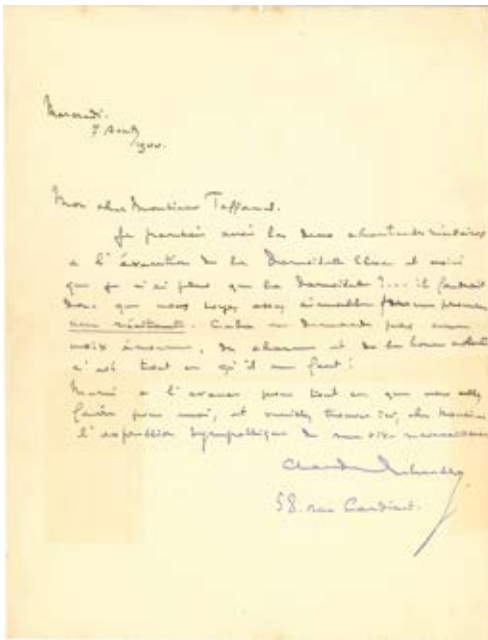 Mercredi.
7 Août
1900.
Mon cher Monsieur Taffanel.
Je pensais avoir les deux chanteuses
à l'exécution de la Damoiselle Elue et voici
que je n'ai plus que la Damoiselle ?... il faudrait
donc que vous soyez assez aimable pour
une récitante. Cela ne demande pas une
voix énorme, du charme et de la bonne
c'est tout ce qu'il me faut !
Merci à l'avance pour tout ce que vous
faire pour moi, et veuillez trouver ici, cher Monsieur
l'expression sympathique de ma vive reconnaissance
Claude Debussy
58. rue Cardinet.